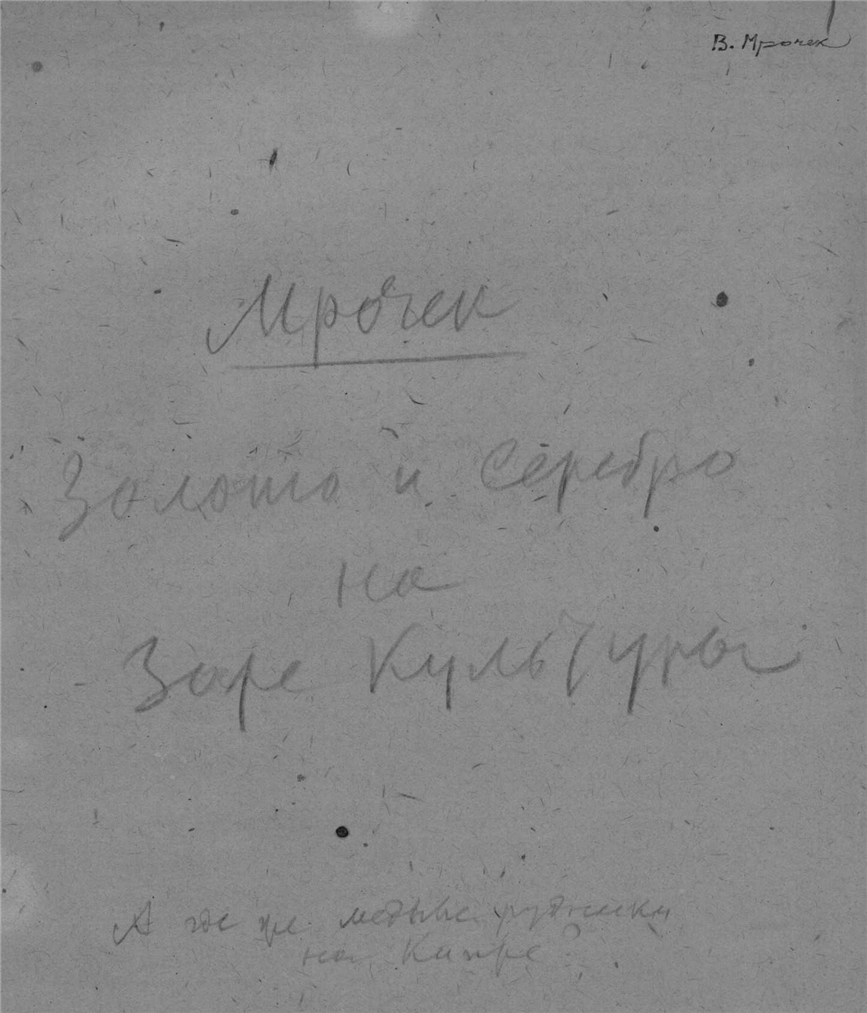 В. Мрочек
Мрочек
Золото и Серебро
на
Заре Культуры
А где же медные рудники
на Кипре?